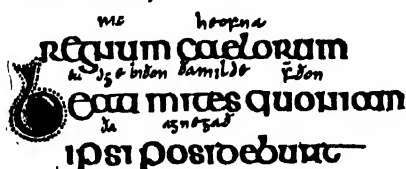 heofna
regnum caelorum
biðon ða milde f̄ðon
Beati mites quoniam
ða agnegað
ipsi posidebunt